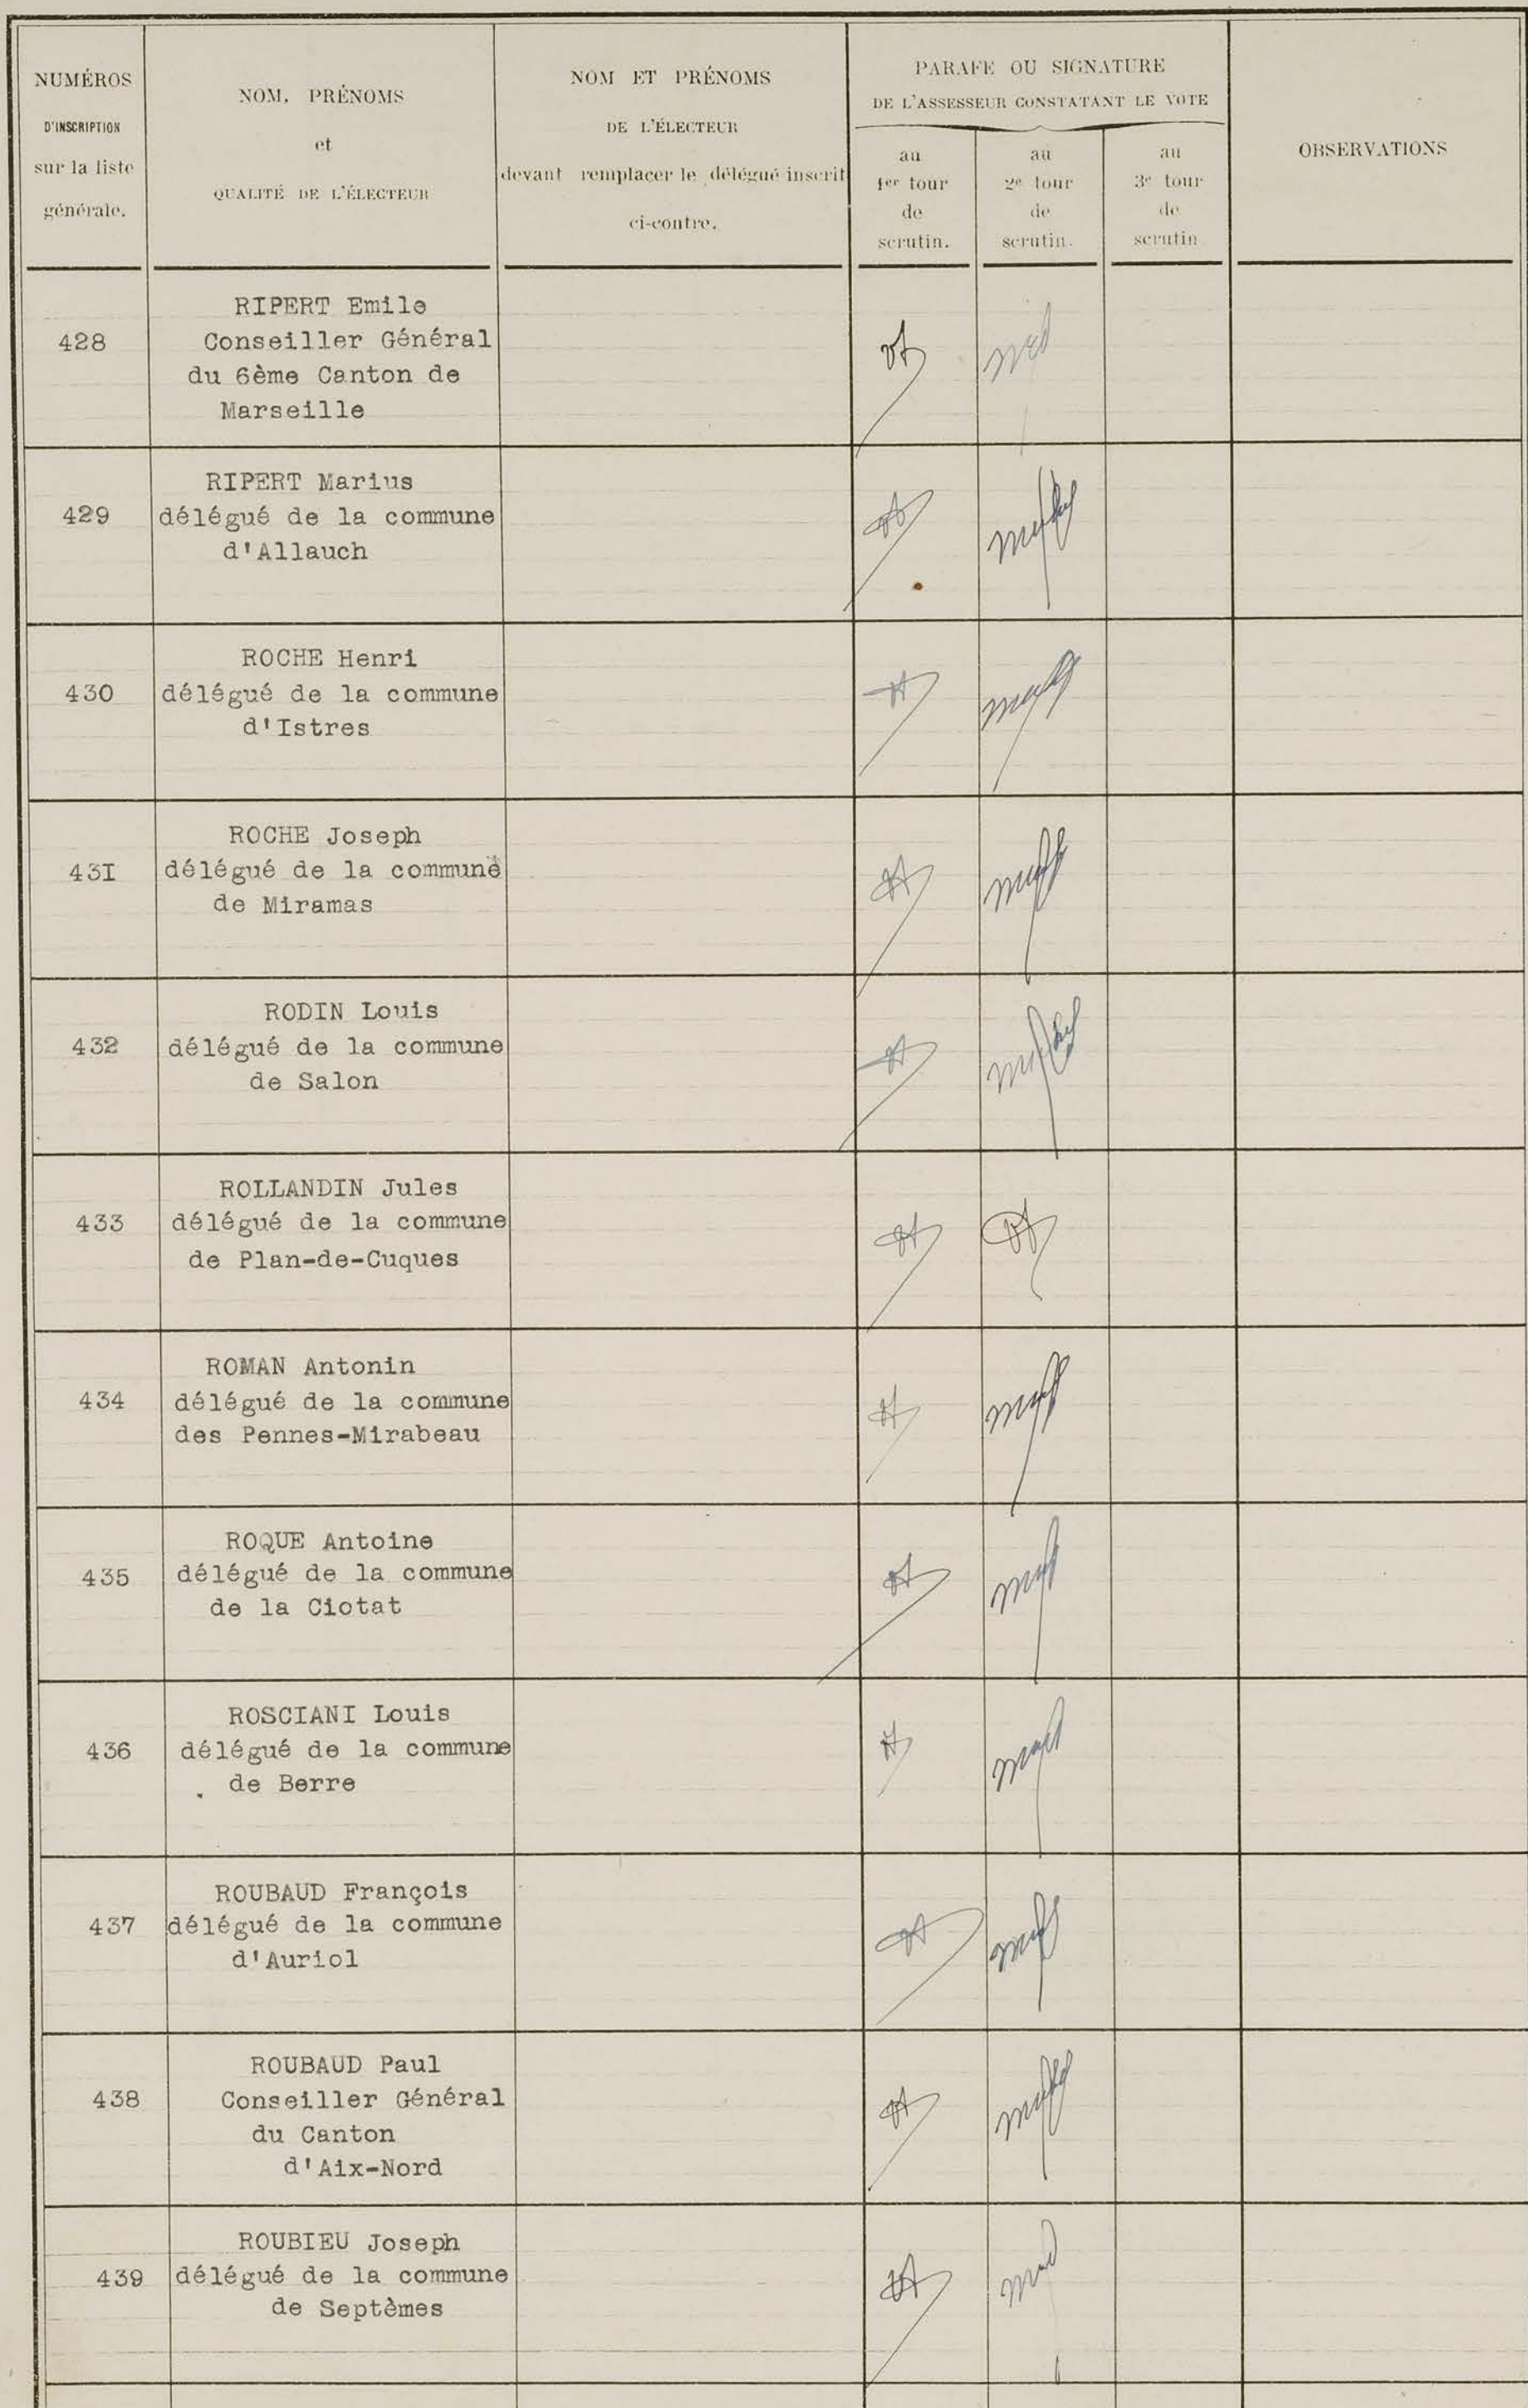 NUMÉROS
D'INSCRIPTION
sur la liste
générale.
NOM, PRÉNOMS
et
QUALITÉ DE L'ÉLECTEUR
NOM ET PRÉNOMS
DE L'ÉLECTEUR
devant remplacer le délégué inscrit
ci-contre.
PARAFE OU SIGNATURE
DE L'ASSESSEUR CONSTATANT LE VOTE
au
1er tour
de
scrutin.
au
2e tour
de
scrutin.
au
3e tour
de
scrutin
OBSERVATIONS
428
RIPERT Emile
Conseiller Général
du 6ème Canton de
Marseille
429
RIPERT Marius
délégué de la commune
d'Allauch
430
ROCHE Henri
délégué de la commune
d'Istres
43I
ROCHE Joseph
délégué de la commune
de Miramas
432
RODIN Louis
délégué de la commune
de Salon
433
ROLLANDIN Jules
délégué de la commune
de Plan-de-Cuques
434
ROMAN Antonin
délégué de la commune
des Pennes-Mirabeau
435
ROQUE Antoine
délégué de la commune
de la Ciotat
436
ROSCIANI Louis
délégué de la commune
de Berre
437
ROUBAUD François
délégué de la commune
d'Auriol
438
ROUBAUD Paul
Conseiller Général
du Canton
d'Aix-Nord
439
ROUBIEU Joseph
délégué de la commune
de Septèmes